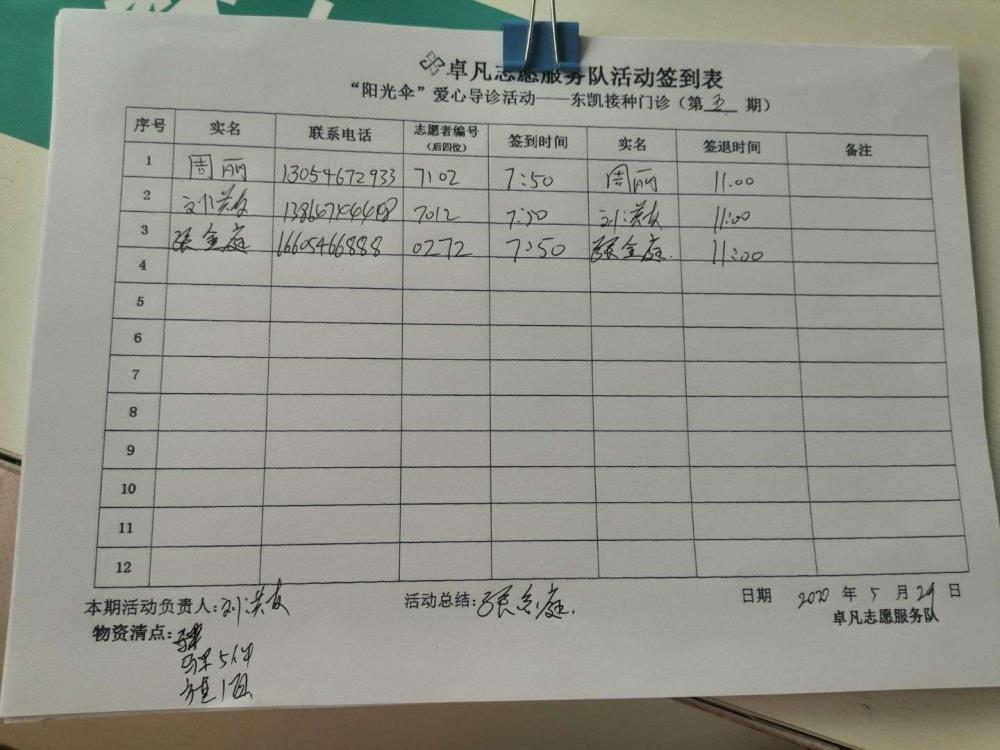 卓凡志愿服务队活动签到表
“阳光伞”爱心导诊活动——东凯接种门诊（第 五 期）
序号 实名 联系电话 志愿者编号（后四位） 签到时间 实名 签退时间 备注
1 周丽 13054672933 7102 7:50 周丽 11:00
2 刘洪友 7012 7:50 刘洪友 11:00
3 張金庭 16605466888 0272 7:50 張金庭. 11:00
4
5
6
7
8
9
10
11
12
本期活动负责人:刘洪友 活动总结:張金庭. 日期 2020 年 5 月 29 日
卓凡志愿服务队
物资清点:
5件
1